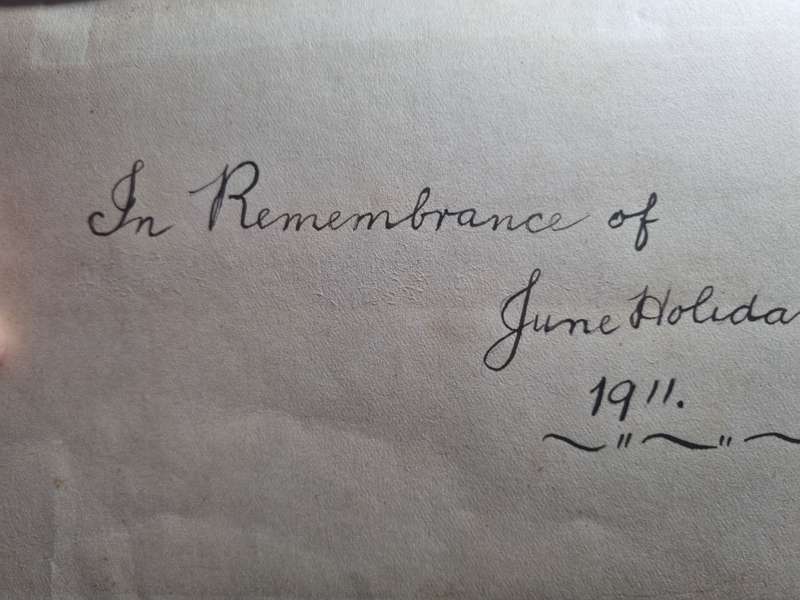 In Remembrance of
June Holida
1911.